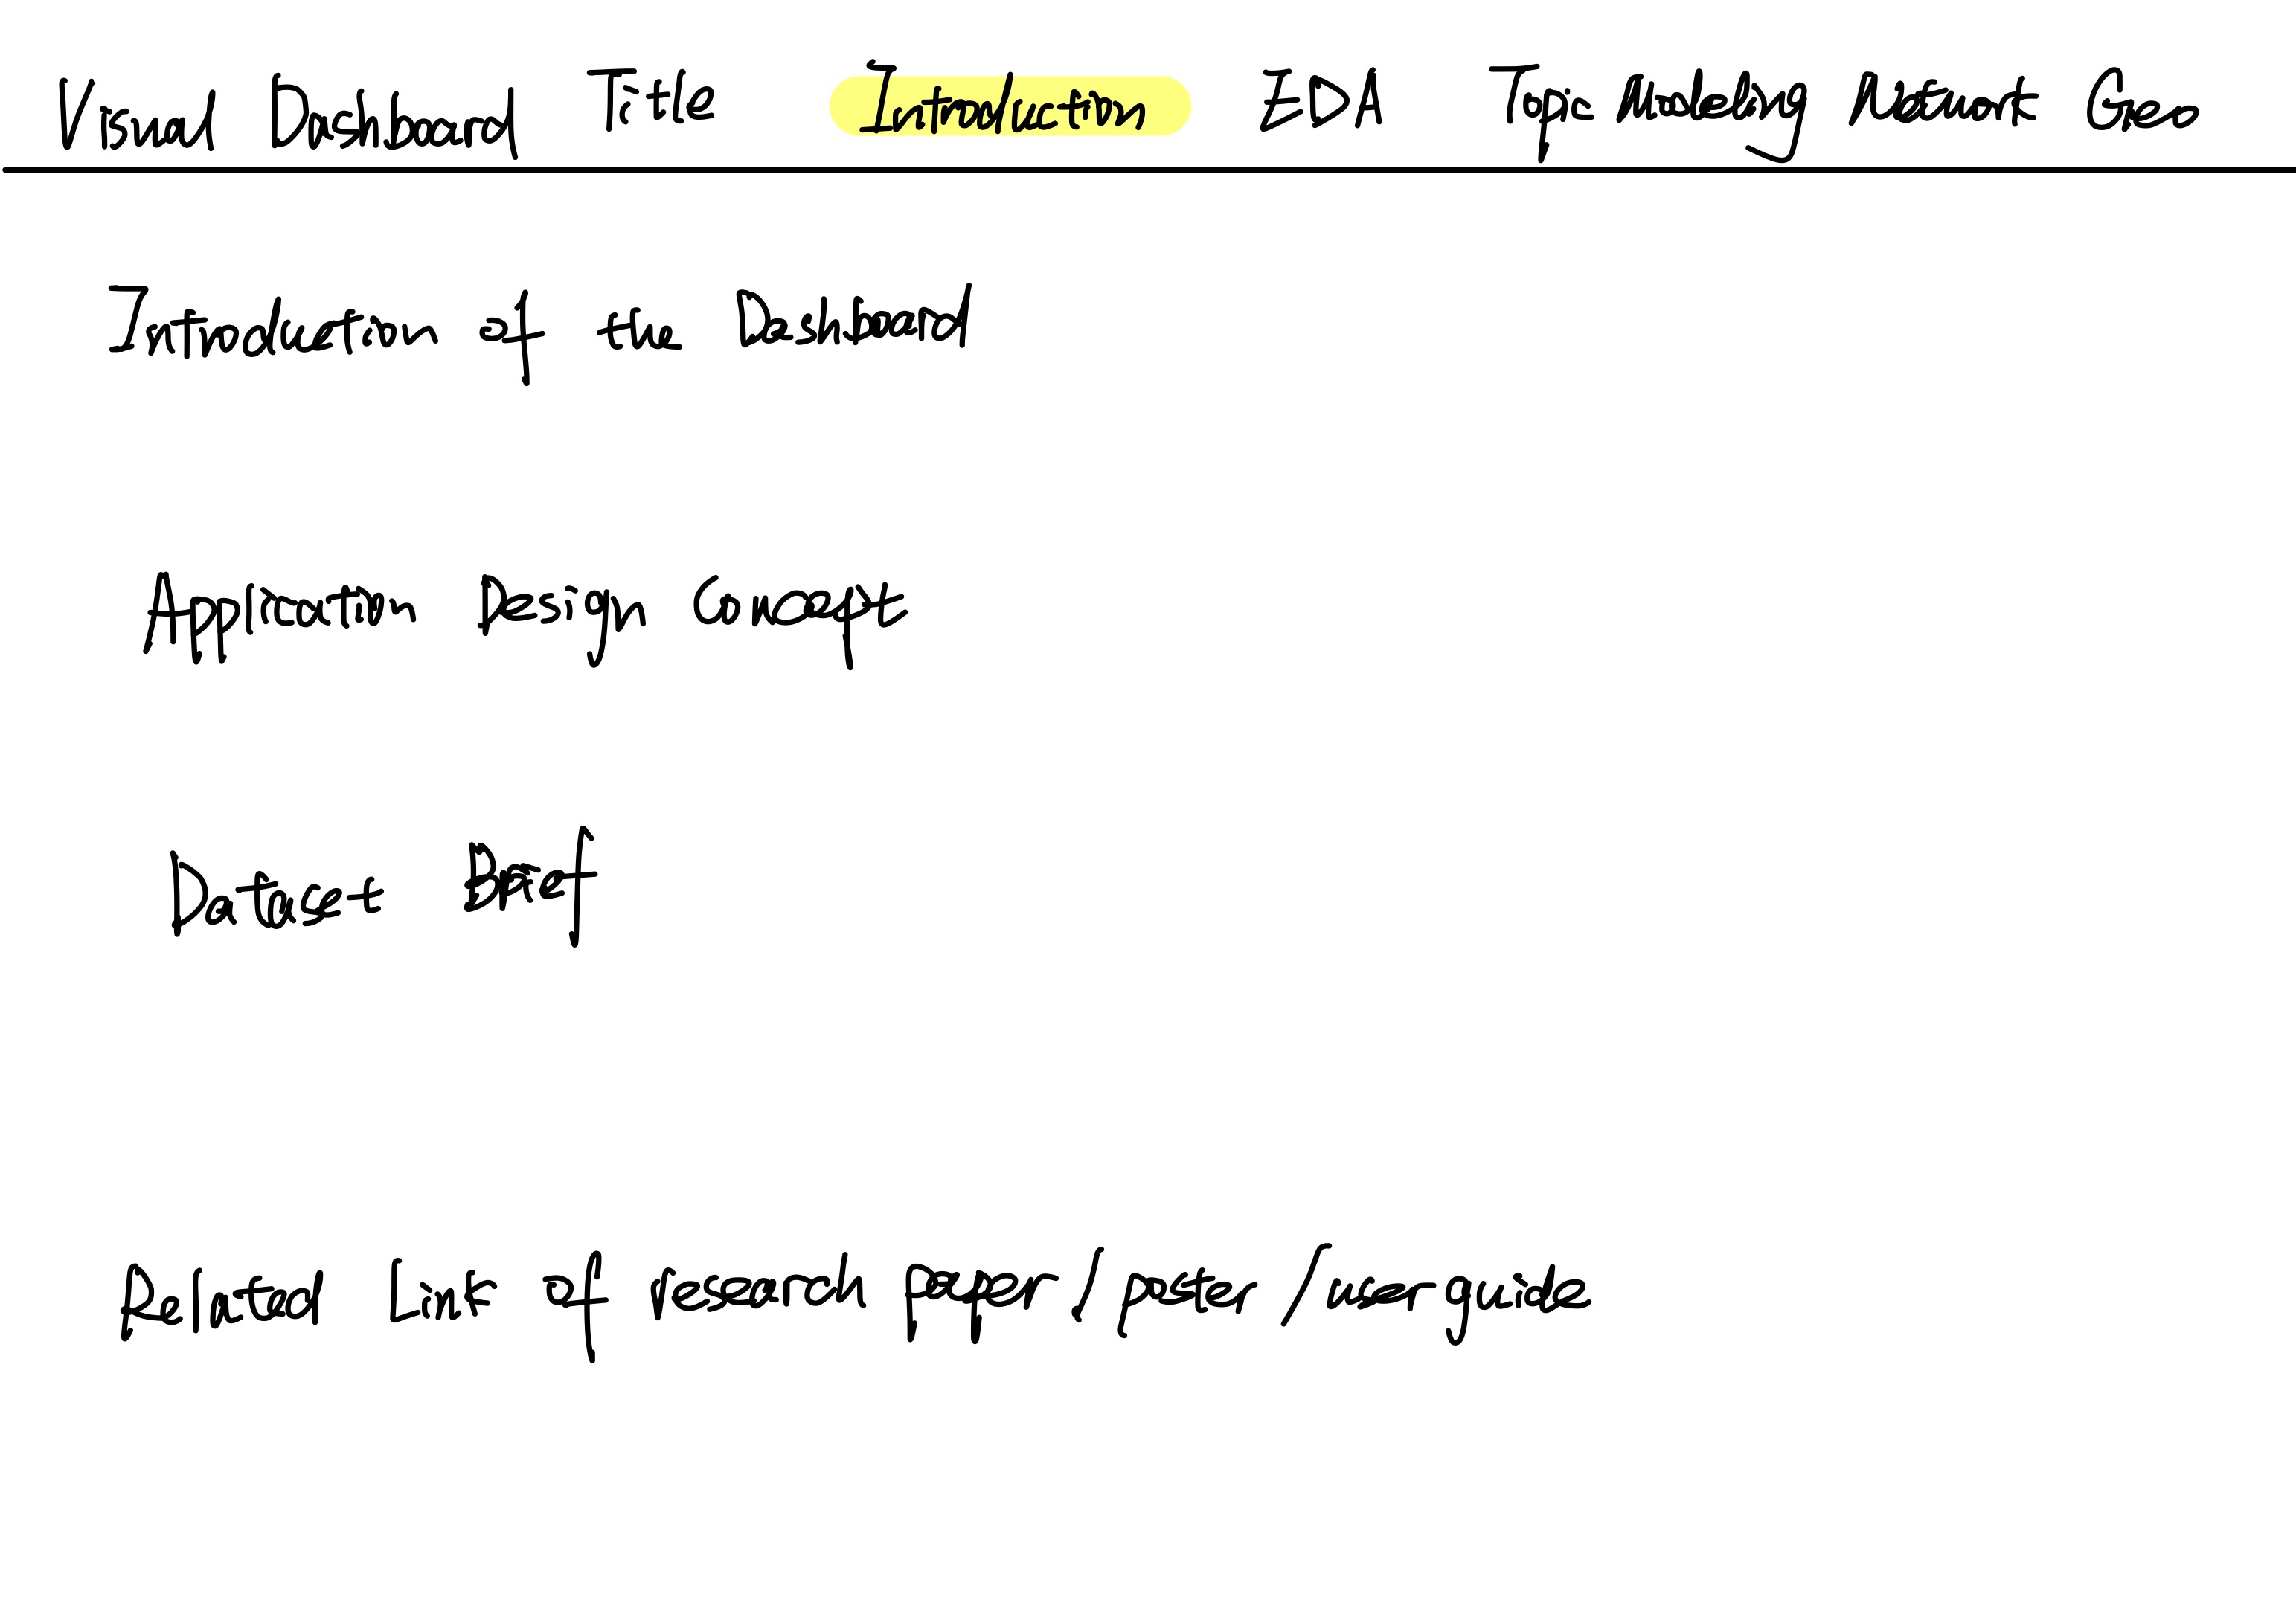 Visual Dashboard Title Introduction EDA Topic Modeling Network Geo
Introduction of the Dashboard
Application Design Concept
Dataset Brief
Related Link of research paper / poster / user guide